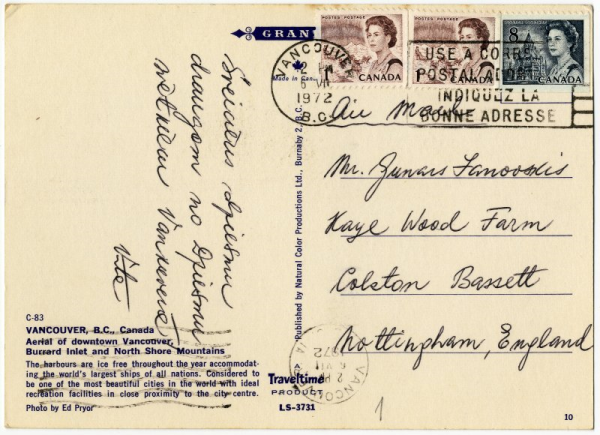 GRAN
Made in Can
VANCOUVER
PM
6 VII
1972
B.C.
POSTES POSTAGE
1
CANADA
POSTES POSTAGE
1
CANADA
8
CANADA
USE A CORRE
POSTAL ADDRE
INDIQUEZ LA
BONNE ADRESSE
Air Mail
Sveicıens dziesmu
draugam no Dziesmu
Vankuverā
Vita
Mr. Gunars Janovskis
Kaye Wood Farm
Colston Bassett
Nottingham, England
Published by Natural Color Productions Ltd., Burnaby 2, B.C.
C-83
VANCOUVER, B.C., Canada
Aerial of downtown Vancouver,
Burrard Inlet and North Shore Mountains
The harbours are ice free throughout the year accommodat-
ing the world's largest ships of all nations. Considered to
be one of the most beautiful cities in the world with ideal
recreation facilities in close proximity to the city centre.
Photo by Ed Pryor
Traveltime
PRODUCT
LS-3731
VANCOUVER
2 PM
6 VII
1972
1
10